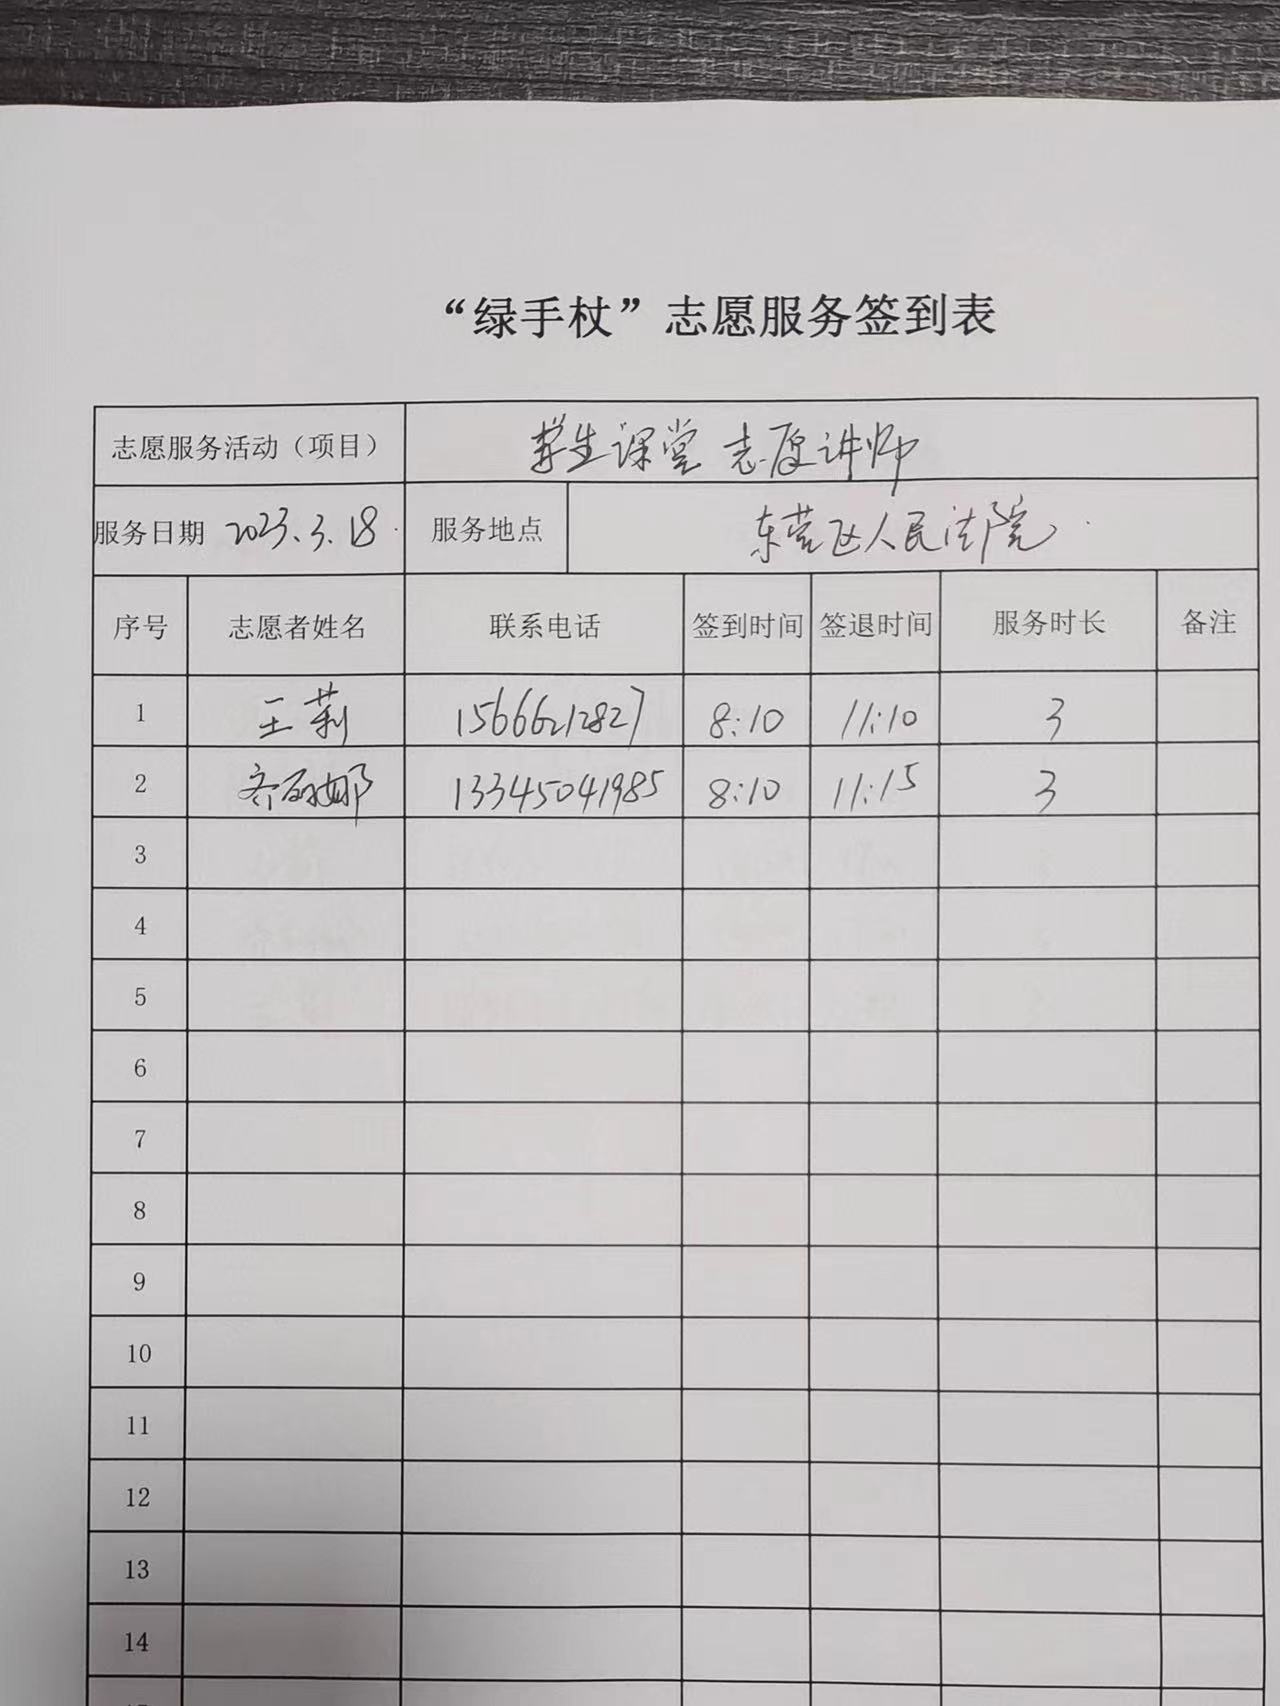 “绿手杖”志愿服务签到表
志愿服务活动（项目） 学生课堂 志愿讲师
服务日期 2023.3.18 服务地点 东营区人民法院
序号 志愿者姓名 联系电话 签到时间 签退时间 服务时长 备注
1 王莉 15666212827 8:10 11:10 3
2 齐娜 13345041985 8:10 11:15 3
3
4
5
6
7
8
9
10
11
12
13
14